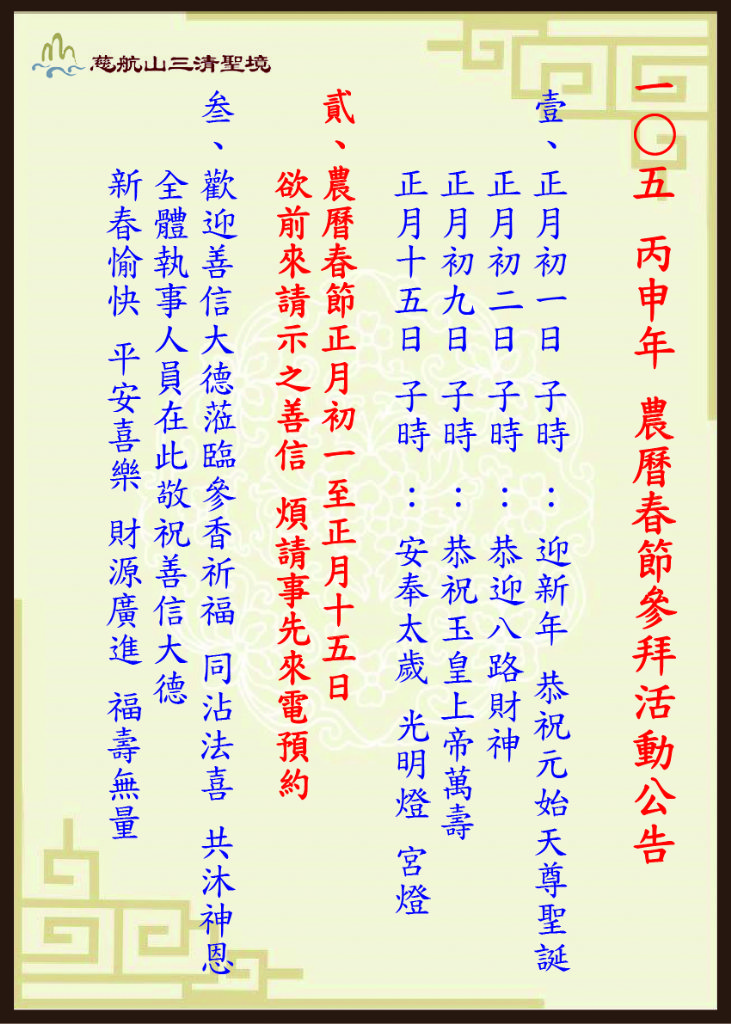 慈航山三清聖境
一〇五 丙申年 農曆春節參拜活動公告
壹、正月初一日 子時 : 迎新年 恭祝元始天尊聖誕
正月初二日 子時 : 恭迎八路財神
正月初九日 子時 : 恭祝玉皇上帝萬壽
正月十五日 子時 : 安奉太歲 光明燈 宮燈
貳、農曆春節正月初一至正月十五日
欲前來請示之善信 煩請事先來電預約
叁、歡迎善信大德蒞臨參香祈福 同沾法喜 共沐神恩
全體執事人員在此敬祝善信大德
新春愉快 平安喜樂 財源廣進 福壽無量